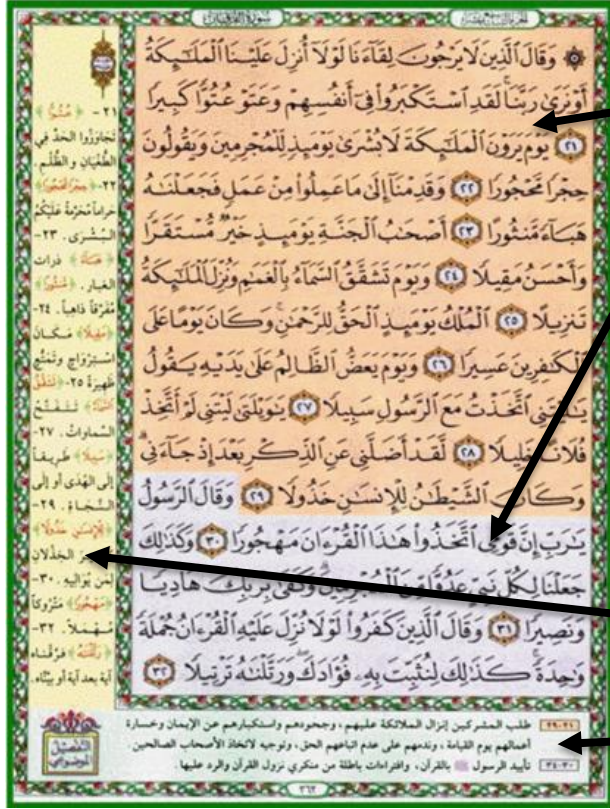 سورة الفرقان
۞ وَقَالَ ٱلَّذِينَ لَا يَرْجُونَ لِقَآءَنَا لَوْلَآ أُنزِلَ عَلَيْنَا ٱلْمَلَـٰٓئِكَةُ
أَوْ نَرَىٰ رَبَّنَا لَقَدِ ٱسْتَكْبَرُوا۟ فِىٓ أَنفُسِهِمْ وَعَتَوْ عُتُوًّا كَبِيرًا
٢١ يَوْمَ يَرَوْنَ ٱلْمَلَـٰٓئِكَةَ لَا بُشْرَىٰ يَوْمَئِذٍ لِّلْمُجْرِمِينَ وَيَقُولُونَ
حِجْرًا مَّحْجُورًا ٢٢ وَقَدِمْنَآ إِلَىٰ مَا عَمِلُوا۟ مِنْ عَمَلٍ فَجَعَلْنَـٰهُ
هَبَآءً مَّنثُورًا ٢٣ أَصْحَـٰبُ ٱلْجَنَّةِ يَوْمَئِذٍ خَيْرٌ مُّسْتَقَرًّا
وَأَحْسَنُ مَقِيلًا ٢٤ وَيَوْمَ تَشَقَّقُ ٱلسَّمَآءُ بِٱلْغَمَـٰمِ وَنُزِّلَ ٱلْمَلَـٰٓئِكَةُ
تَنزِيلًا ٢٥ ٱلْمُلْكُ يَوْمَئِذٍ ٱلْحَقُّ لِلرَّحْمَـٰنِ وَكَانَ يَوْمًا عَلَى
ٱلْكَـٰفِرِينَ عَسِيرًا ٢٦ وَيَوْمَ يَعَضُّ ٱلظَّالِمُ عَلَىٰ يَدَيْهِ يَقُولُ
يَـٰلَيْتَنِى ٱتَّخَذْتُ مَعَ ٱلرَّسُولِ سَبِيلًا ٢٧ يَـٰوَيْلَتَىٰ لَيْتَنِى لَمْ أَتَّخِذْ
فُلَانًا خَلِيلًا ٢٨ لَّقَدْ أَضَلَّنِى عَنِ ٱلذِّكْرِ بَعْدَ إِذْ جَآءَنِى
وَكَانَ ٱلشَّيْطَـٰنُ لِلْإِنسَـٰنِ خَذُولًا ٢٩ وَقَالَ ٱلرَّسُولُ
يَـٰرَبِّ إِنَّ قَوْمِى ٱتَّخَذُوا۟ هَـٰذَا ٱلْقُرْءَانَ مَهْجُورًا ٣٠ وَكَذَٰلِكَ
جَعَلْنَا لِكُلِّ نَبِىٍّ عَدُوًّا مِّنَ ٱلْمُجْرِمِينَ وَكَفَىٰ بِرَبِّكَ هَادِيًا
وَنَصِيرًا ٣١ وَقَالَ ٱلَّذِينَ كَفَرُوا۟ لَوْلَا نُزِّلَ عَلَيْهِ ٱلْقُرْءَانُ جُمْلَةً
وَٰحِدَةً كَذَٰلِكَ لِنُثَبِّتَ بِهِۦ فُؤَادَكَ وَرَتَّلْنَـٰهُ تَرْتِيلًا ٣٢
٢١- ﴿عُتُوًّا﴾
تجاوزوا الحدّ في
الطُّغيان والظُّلم.
٢٢- ﴿حِجْرًا مَّحْجُورًا﴾
حراماً مُحَرَّمةً عَلَيْكُمُ
البُشْرَى. ٢٣-
﴿هَبَاءً﴾ ذرات
الغبار. ﴿مَنثُورًا﴾
مُفَرَّقاً ذاهباً. ٢٤-
﴿مَقِيلًا﴾ مكان
استرواح وتمتّع
ظهيرةً ٢٥- ﴿تَشَقَّقُ
السَّمَاءُ﴾ تتفتّح
السماوات. ٢٧-
﴿سَبِيلًا﴾ طريقاً
إلى الهُدى أو إلى
النجاة. ٢٩-
﴿لِلْإِنسَانِ خَذُولًا﴾
الخذلان
لمن يواليه. ٣٠-
﴿مَهْجُورًا﴾ متروكاً
مُهملاً. ٣٢-
﴿رَتَّلْنَاهُ﴾ فرّقناه
آية بعد آية أو بيّنّاه.
التفصيل الموضوعي
٢١-٢٩ طلب المشركين إنزال الملائكة عليهم، وجحودهم واستكبارهم عن الإيمان وخسارة
أعمالهم يوم القيامة، وندمهم على عدم اتباعهم الحق، وتوجيه لاتخاذ الأصحاب الصالحين.
٣٠-٣٤ تأييد الرسول ﷺ بالقرآن، وافتراءات باطلة من منكري نزول القرآن والرد عليها.
٣٦٢